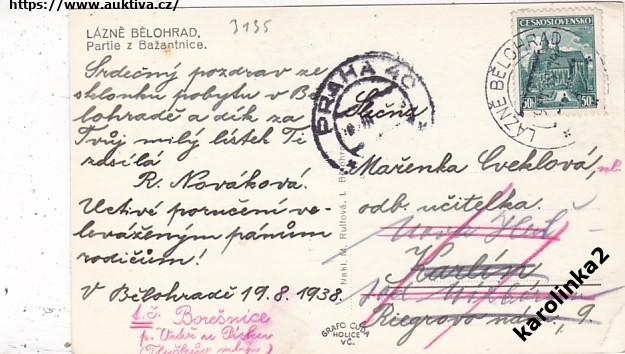 https://www.auktiva.cz/
3135
LÁZNĚ BĚLOHRAD.
Partie z Bažantnice.
Srdečný pozdrav ze
sklonku pobytu v Bě-
lohradě a dík za
Tvůj milý lístek Ti
zasílá
R. Nováková.
Uctivé poručení ve-
leváženým pánům
rodičům!
V Bělohradě 19.8.1938.
t. č. Borešnice
ČESKOSLOVENSKO
50h 50h
LÁZNĚ BĚLOHRAD
PRAHA 40
Slečna
Mařenka Cveklová,
odb. učitelka.
Karlín
Riegrovo nám., 9.
Nakl. M. Rulfová, L. Bělohrad
GRAFO ČUDA
HOLICE
V Č.
karolinka2